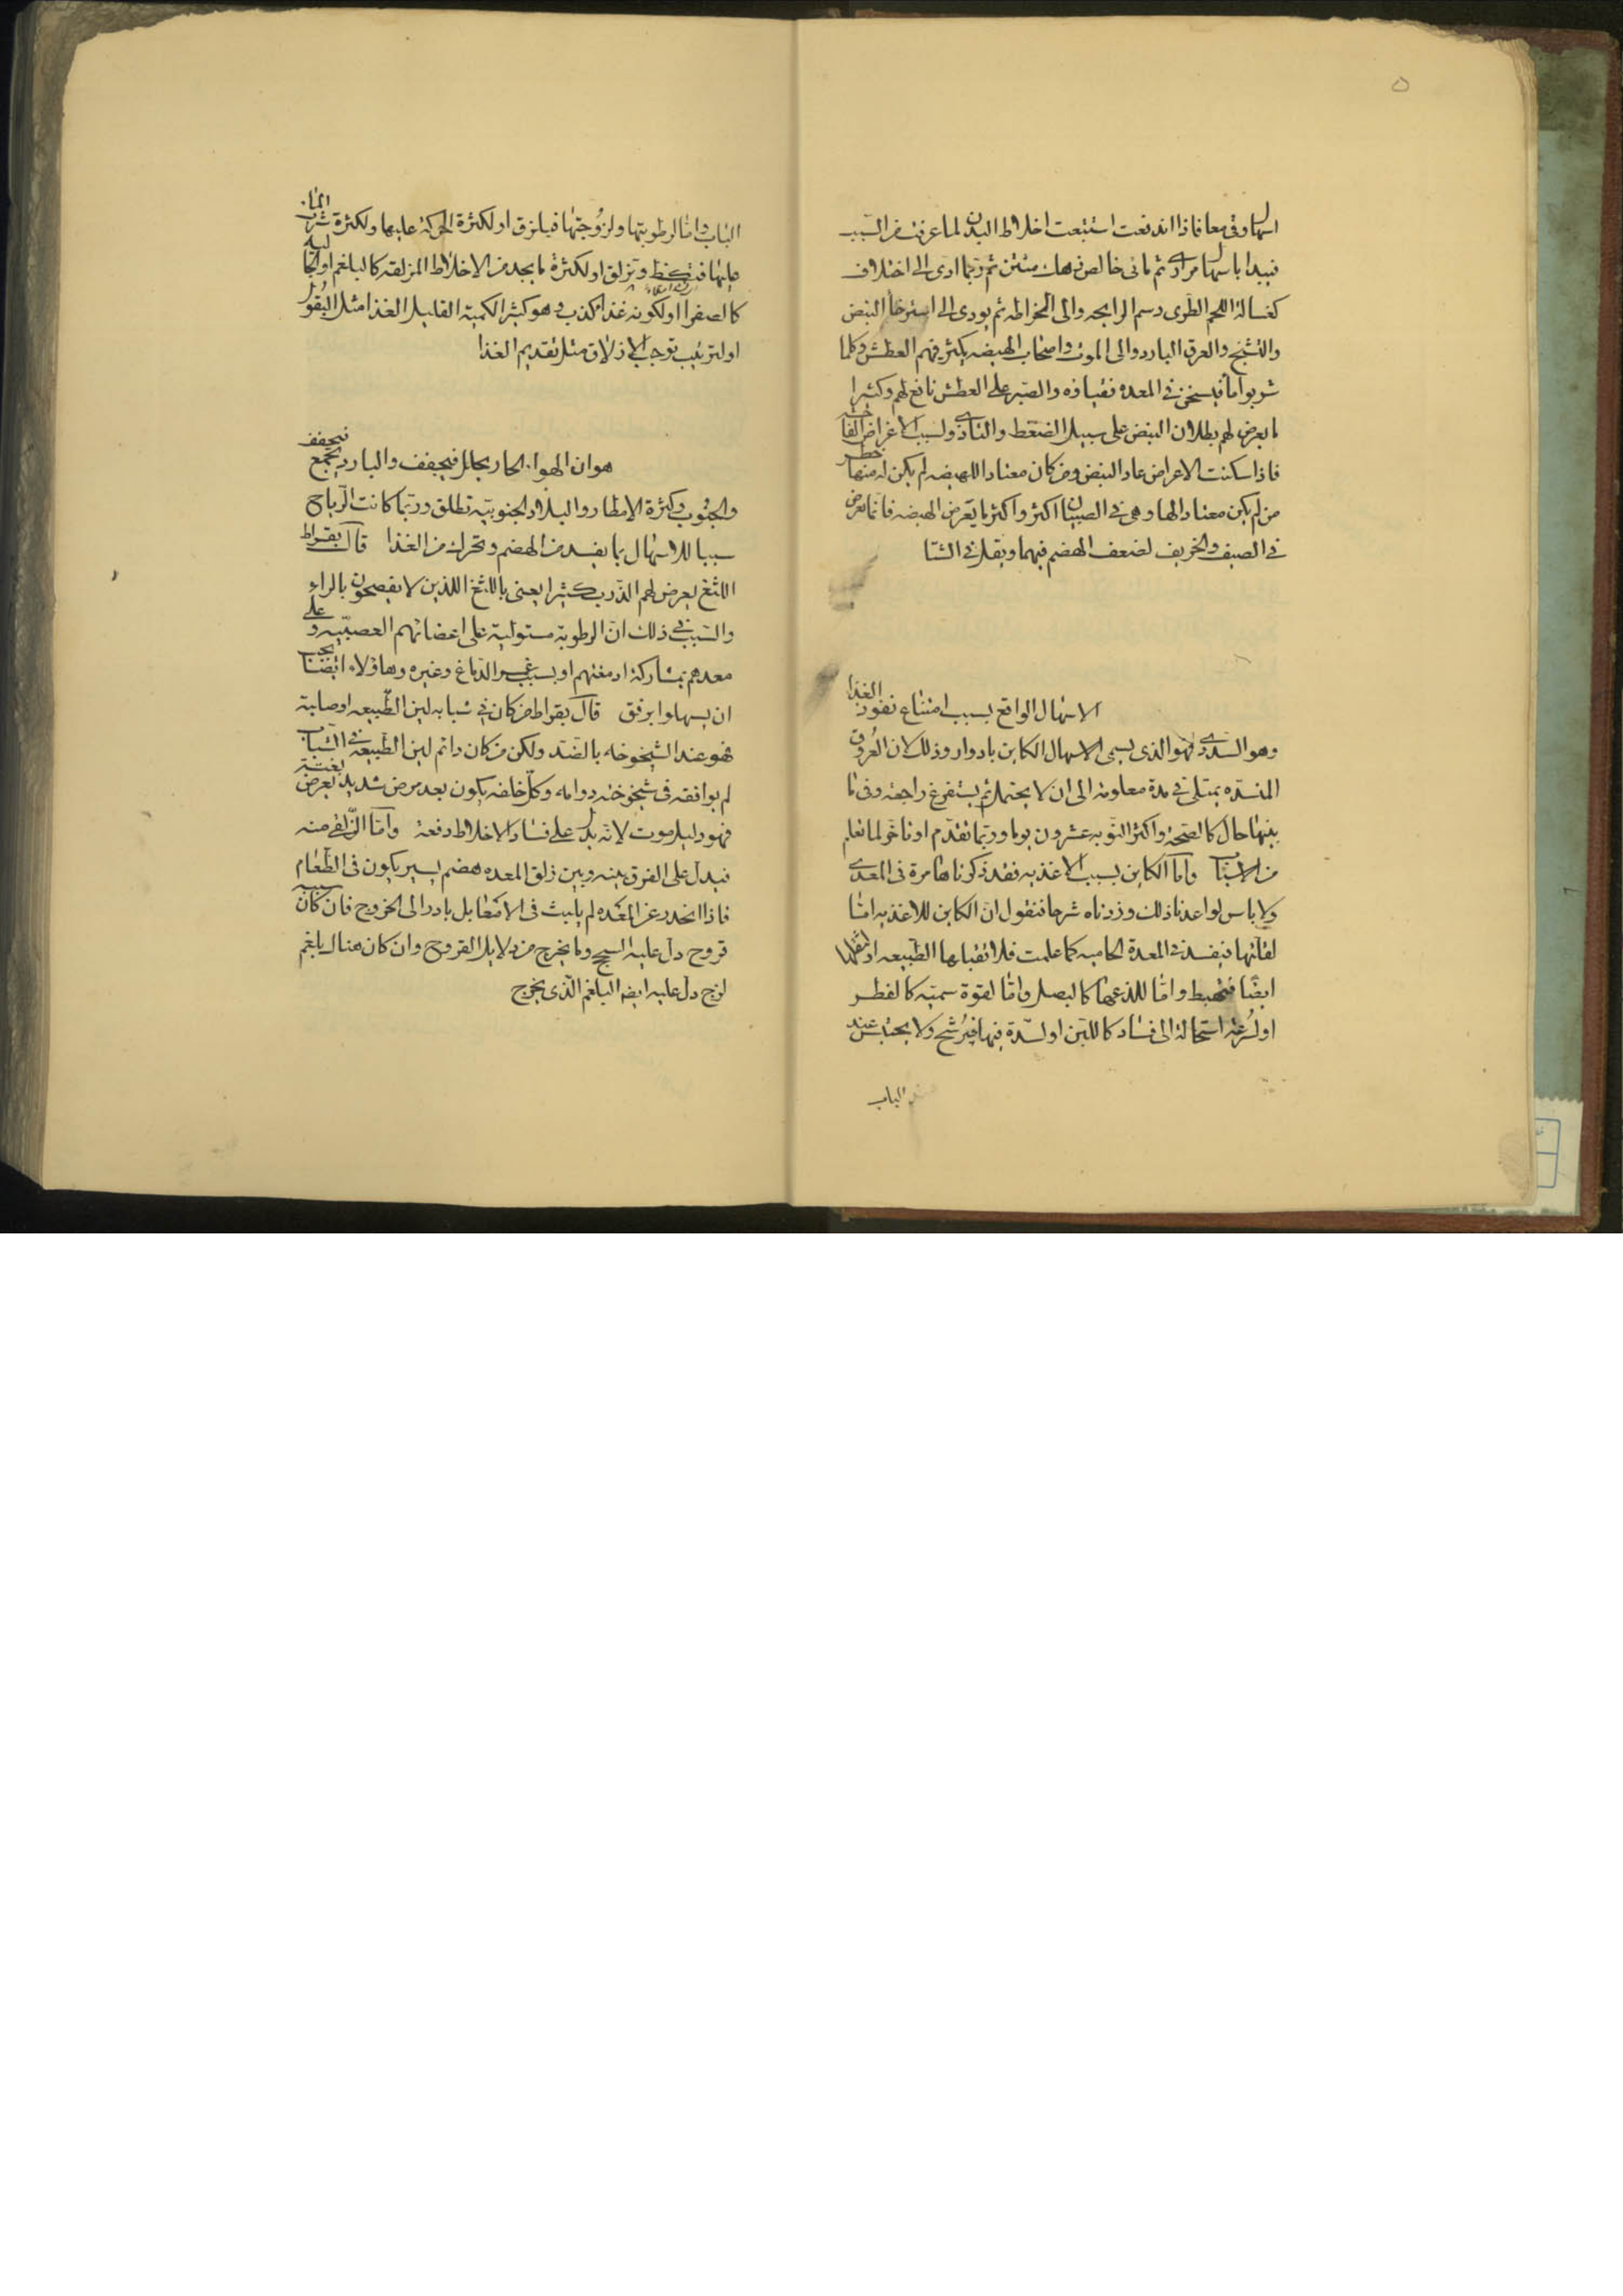 ٥
اسهال وقي معا فاذا اندفعت استتبعت اخلاط البدن لما عرفت من السبب
فيبدا باسهال مرارى ثم مائى خالص زهك منتن ثم ربما ادى الى اختلاف
كغسالة اللحم الطرى دسم الرايحه والى الخراطه ثم يودى الى استرخا النبض
والتشنج والعرق البارد والى الموت واصحاب الهيضه يكثر فيهم العطش وكلما
شربوا ما فيسخن فى المعده فقياوه والصبر على العطش نافع لهم وكثيرا
ما يعرض لهم بطلان النبض على سبيل الضغط والتاذى ولسبب الاعراض
فاذا سكنت الاعراض عاد النبض ومن كان معتادا للهيضه لم يكن له منها خطر
من لم يكن معتادا لها وهى فى الصبيان اكثر واكثر ما يعرض الهيضه فانما يعرض
فى الصيف والخريف لضعف الهضم فيهما ويقل فى الشتا
الاسهال الواقع بسبب امتناع نفوذ الغذا
وهو السددى فهو الذى يسمى الاسهال الكاين بادوار وذلك لان العروق
المنسده يمتلى فى مدة معلومه الى ان لا يحتمل ثم يستفرغ راجعه وفى ما
بينها حال كالصحة واكثر النوبه عشرون يوما وربما تقدم او تاخر لما تعلم
من الاسباب واما الكاين بسبب الاغذيه فقد ذكرناها مرة فى المعدى
ولا باس لو اعدنا ذلك وزدناه شرحا فنقول ان الكاين للاغذيه اما
لقلتها فيفسد فى المعدة الحاميه كما علمت فلا تقبلها الطبيعه او لثقلها
ايضا فتهبط واما للذعها كالبصل واما لقوة سميه كالفطر
او لسرعة استحالة الى فساد كاللبن او لسدة فيها فيرشح ولا يحتبس عند
الباب
الباب واما لرطوبتها ولزوجتها فيلزق او لكثرة الحركة عليها ولكثرة شرب الما
عليها وتزلق او لكثرة ما يجد من الاخلاط المزلقه كالبلغم او الجالية
كالصفرا او لكونه غذا كذب وهو كثير الكميه القليل الغذا مثل البقول
او لترتيب توجب الازلاق مثل تقديم الغذا
هو ان الهوا الحار يحلل فيجفف والبارد يجمع فيجفف
والجنوب وكثرة الامطار والبلاد الجنوبيه تطلق وربما كانت الرياح
سببا للاسهال بما يفسد من الهضم وتحرك من الغذا قال بقراط
اللثغ يعرض لهم الذرب كثيرا يعنى باللثغ اللذين لا يفصحون بالراء
والسبب فى ذلك ان الرطوبة مستولية على اعضائهم العصبيه وعلى
معدهم بمشاركة ادمغتهم او بسبب عم الدماغ وغيره وهاولاء ايضا يجب
ان يسهلوا برفق قال بقراط من كان فى شبابه لين الطبيعه او صلبة
فهو عند الشيخوخه بالضد ولكن من كان دايم لين الطبيعة فى الشباب
لم يوافقه فى شيخوخته دوامه وكل خلفه يكون بعد مرض شديد يعرض بغتة
فهو دليل موت لانه يدل على فساد الاخلاط دفعة واما الزلقى منه
فيدل على الفرق بينه وبين زلق المعده هضم يسير يكون فى الطعام
فاذا انحدر عن المعده لم يلبث فى الامعا بل بادر الى الخروج فان كان سببه
قروح دل عليه السحج وما يخرج من دلايل القروح وان كان هناك بلغم
لزج دل عليه ايضا البلغم الذى يخرج